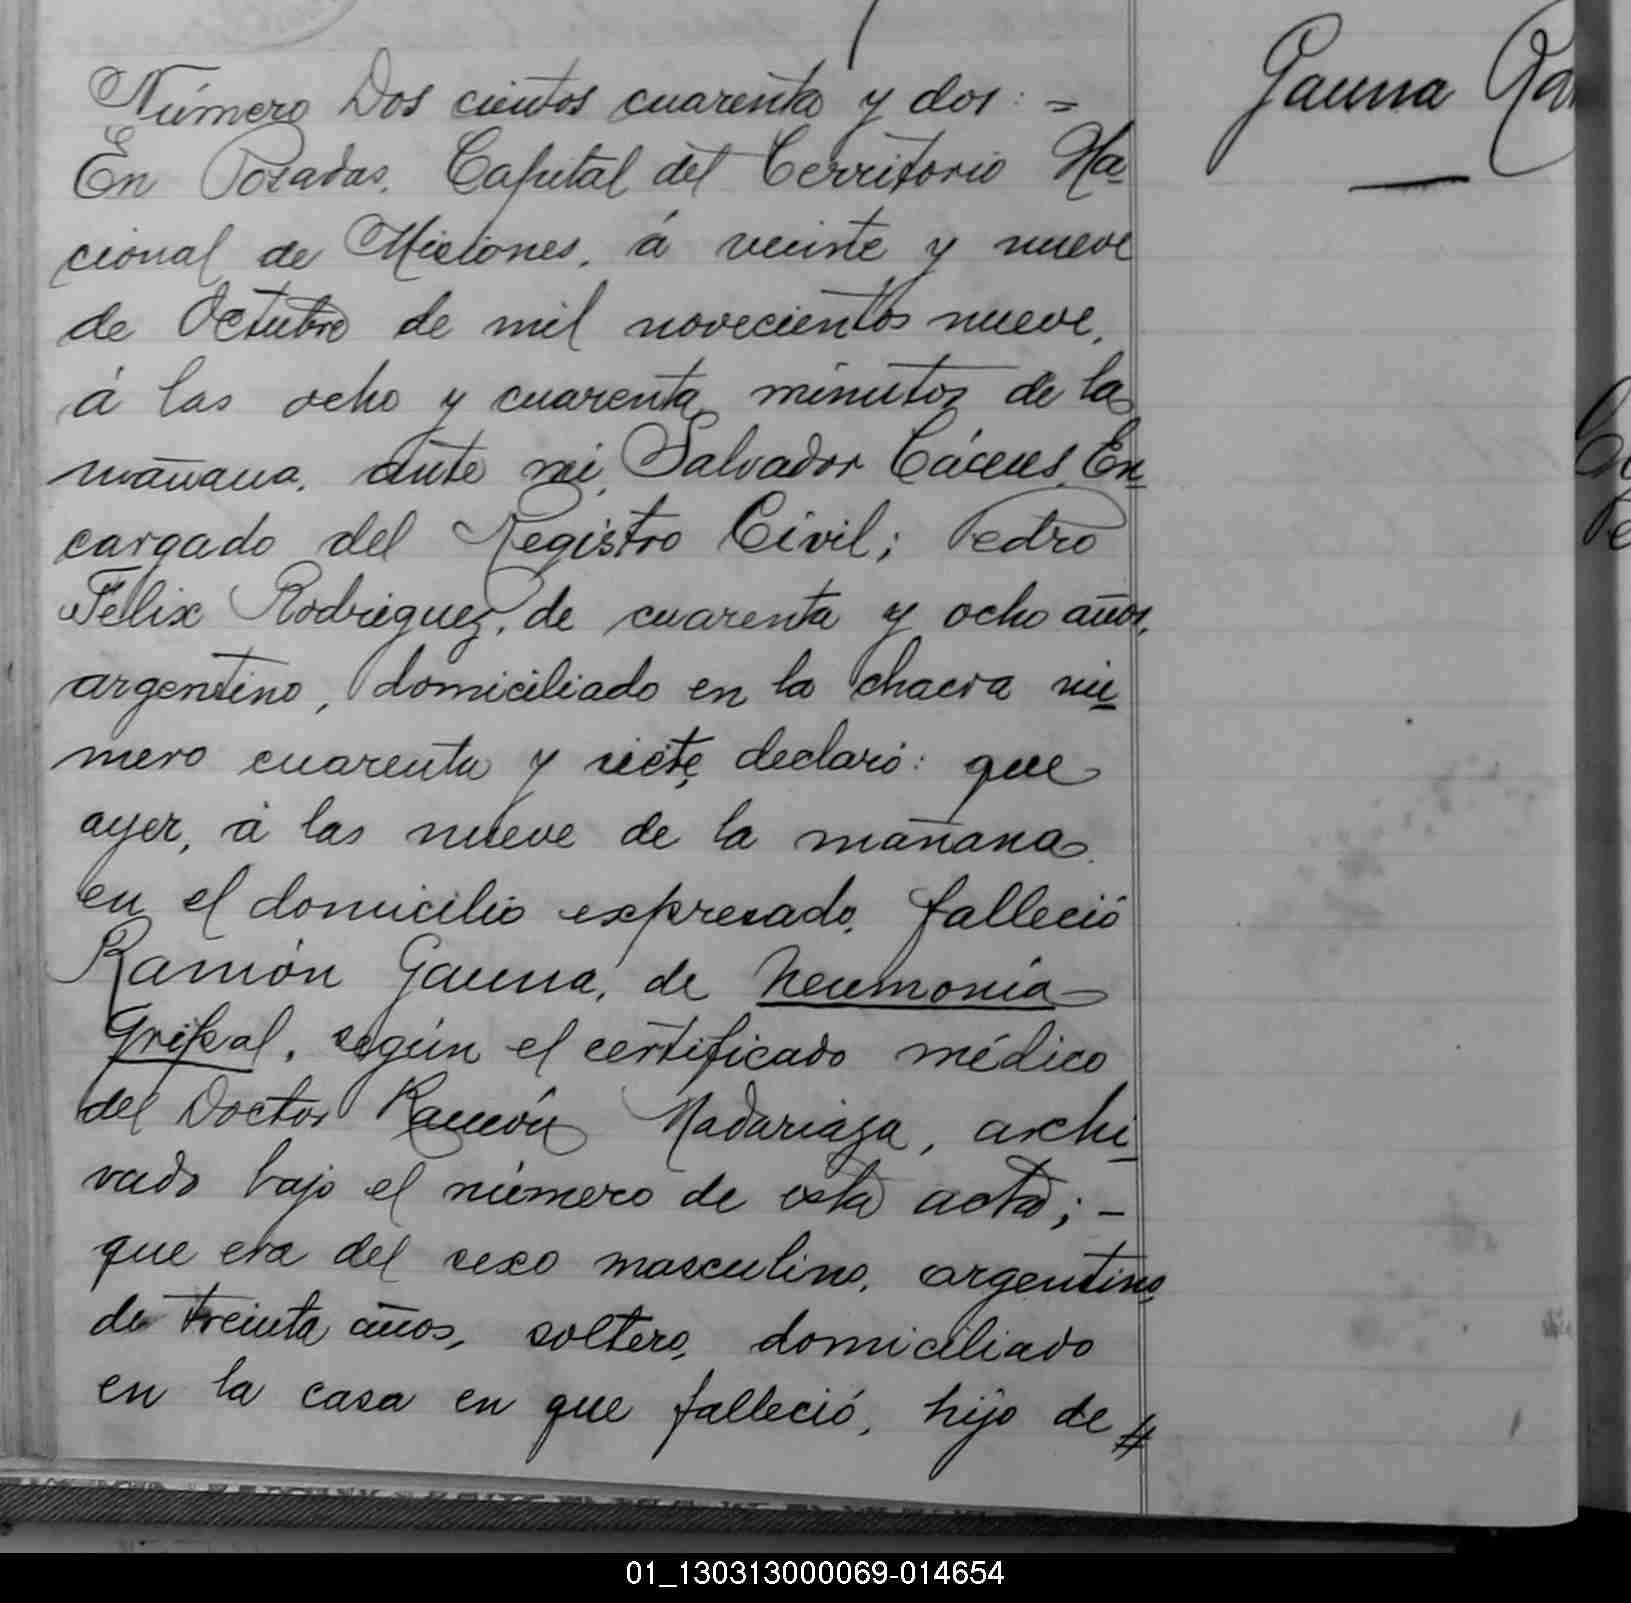 Número Dos cientos cuarenta y dos: =
Gauna Ra
En Posadas, Capital del Territorio Na-
cional de Misiones, á veinte y nueve
de Octubre de mil novecientos nueve,
á las ocho y cuarenta minutos de la
mañana, ante mi, Salvador Cáceres, En-
cargado del Registro Civil; Pedro
Felix Rodriguez, de cuarenta y ocho años,
argentino, domiciliado en la chacra nú-
mero cuarenta y siete, declaró: que
ayer, á las nueve de la mañana,
en el domicilio expresado, falleció
Ramón Gauna, de Neumonía
Gripal, según el certificado médico
del Doctor Ramón Madariaga, archi-
vado bajo el número de esta acta; -
que era del sexo masculino, argentino,
de treinta años, soltero, domiciliado
en la casa en que falleció, hijo de #
01_130313000069-014654